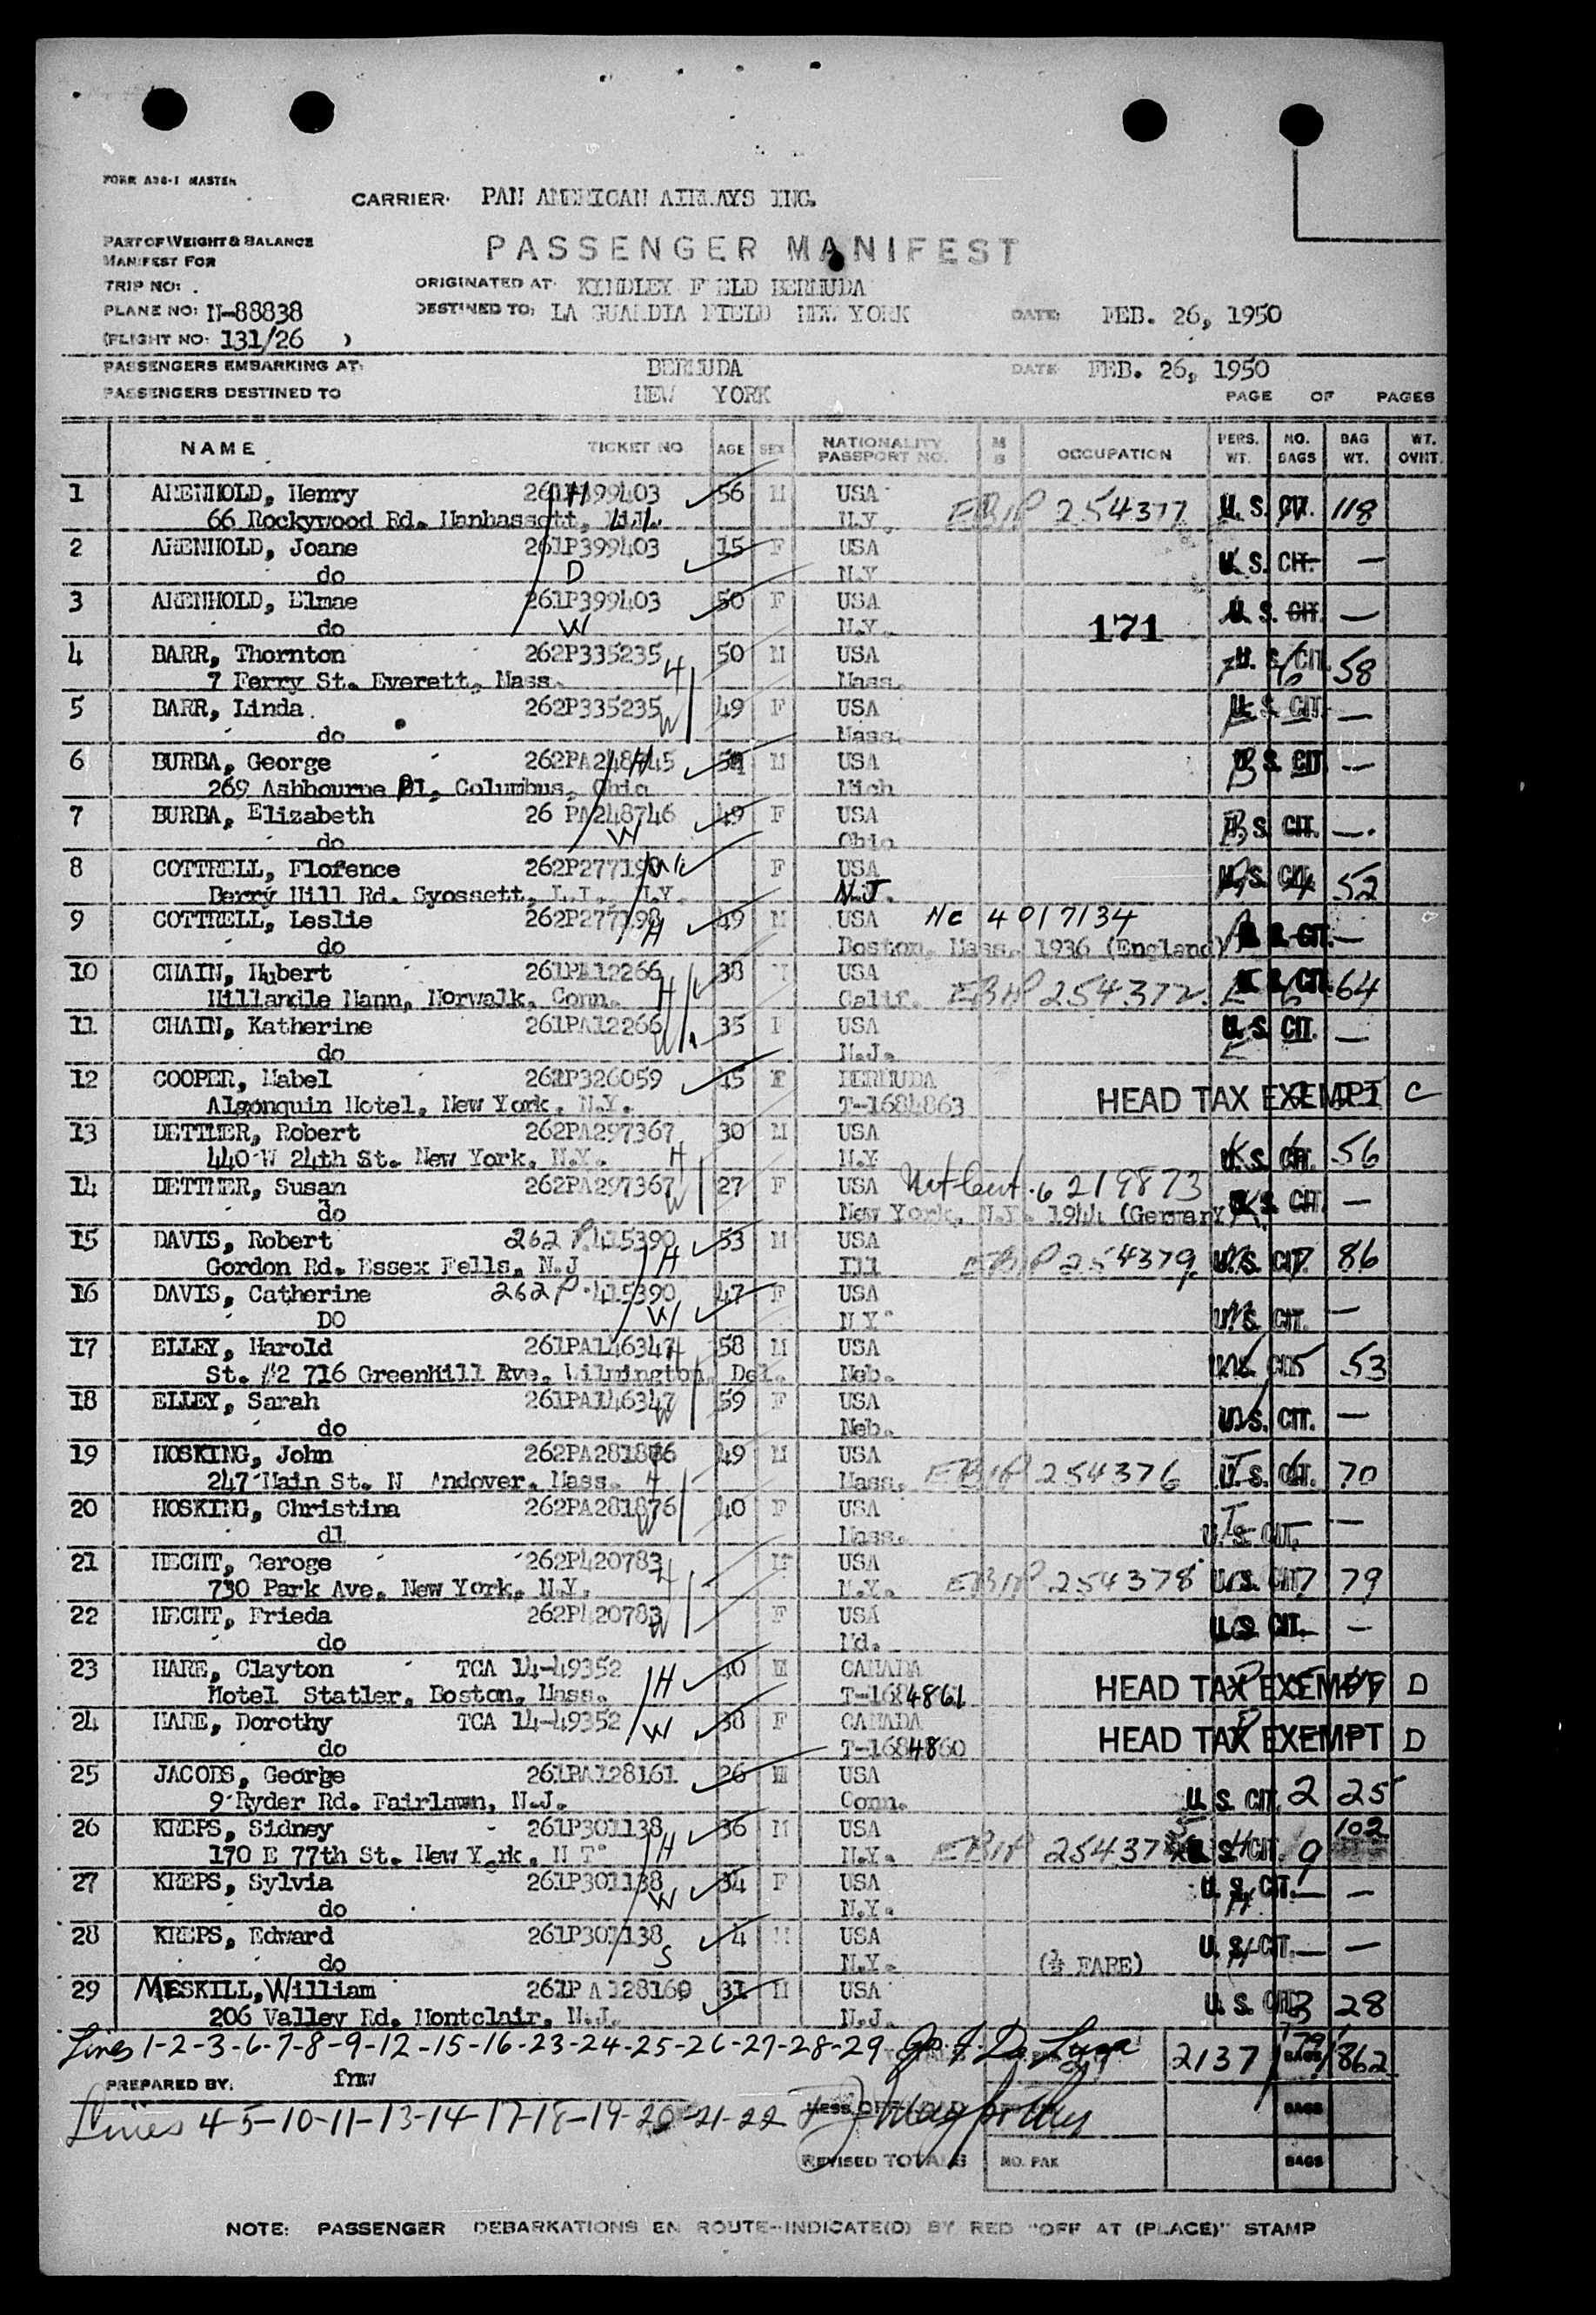 FORM A36-1 MASTER
CARRIER: PAN AMERICAN AIRWAYS INC.
PART OF WEIGHT & BALANCE
MANIFEST FOR
PASSENGER MANIFEST
TRIP NO:
ORIGINATED AT: KINDLEY FIELD BERMUDA
PLANE NO: N-88838
DESTINED TO: LA GUARDIA FIELD NEW YORK
DATE: FEB. 26, 1950
(FLIGHT NO: 131/26 )
PASSENGERS EMBARKING AT: BERMUDA DATE FEB. 26, 1950
PASSENGERS DESTINED TO NEW YORK PAGE OF PAGES
NAME TICKET NO AGE SEX NATIONALITY PASSPORT NO. M B OCCUPATION PERS. WT. NO. BAGS BAG WT. WT. OVHT.
1 ARENHOLD, Henry 261P399403 H 56 M USA
66 Rockywood Rd. Manhassett, L.I. N.Y. EBIP 254377 U. S. CIT. 118
2 ARENHOLD, Joane 261P399403 15 F USA
do D N.Y U. S. CIT. —
3 ARENHOLD, Elmae 261P399403 50 F USA
do W N.Y. 171 U. S. CIT. —
4 BARR, Thornton 262P335235 50 M USA
7 Ferry St. Everett, Mass. H Mass. U. S. CIT. 6 58
5 BARR, Linda 262P335235 49 F USA
do W Mass. U. S. CIT. —
6 BURBA, George 262PA248745 H M USA
269 Ashbourne Pl, Columbus, Ohio Mich U. S. CIT. —
7 BURBA, Elizabeth 26 PA248746 49 F USA
do W Ohio U. S. CIT. —
8 COTTRELL, Florence 262P277199 F USA
Berry Hill Rd. Syossett, L.I., N.Y. N.J. U. S. CIT. 4 52
9 COTTRELL, Leslie 262P277198 49 M USA NC 4017134
do H Boston, Mass. 1936 (England) U. S. CIT. —
10 CHAIN, Hubert 261PA12266 38 M USA
Millandle Mann, Norwalk, Conn. H Calif. EBIP 254372 U. S. CIT. 6 64
11 CHAIN, Katherine 261PA12266 35 F USA
do W N.J. U. S. CIT. —
12 COOPER, Mabel 261P326059 45 F BERMUDA
Algonquin Hotel, New York, N.Y. T-1684863 HEAD TAX EXEMPT C
13 DETTMER, Robert 262PA297367 30 M USA
440 W 24th St. New York, N.Y. H N.Y U. S. CIT. 6 56
14 DETTMER, Susan 262PA297367 27 F USA Nat Cert. 6219873
do W New York, N.Y. 1944 (Germany) U. S. CIT. —
15 DAVIS, Robert 262 P 415390 53 M USA
Gordon Rd. Essex Fells, N.J H Ill EBIP 254379 U. S. CIT. 7 86
16 DAVIS, Catherine 262 P 415390 47 F USA
DO W N.Y U. S. CIT. —
17 ELLEY, Harold 261PA146347 H 58 M USA
St. #2 716 Greenhill Ave. Wilmington, Del. Neb. U. S. CIT. 5 53
18 ELLEY, Sarah 261PA146347 59 F USA
do W Neb. U. S. CIT. —
19 HOSKING, John 262PA281876 49 M USA
247 Main St. N Andover, Mass. H Mass. EBIP 254376 U. S. CIT. 6 70
20 HOSKING, Christina 262PA281876 40 F USA
d1 W Mass. U. S. CIT. —
21 HECHT, Geroge 262P420783 M USA
730 Park Ave, New York, N.Y. H N.Y. EBIP 254378 U. S. CIT. 7 79
22 HECHT, Frieda 262P420783 F USA
do W Md. U. S. CIT. —
23 HARE, Clayton TCA 14-49352 40 M CANADA
Hotel Statler, Boston, Mass. H T-1684861 HEAD TAX EXEMPT D
24 HARE, Dorothy TCA 14-49352 38 F CANADA
do W T-1684860 HEAD TAX EXEMPT D
25 JACOBS, George 261PA128161 26 M USA
9 Ryder Rd. Fairlawn, N.J. Conn. U. S. CIT. 2 25
26 KREPS, Sidney 261P301138 36 M USA 102
170 E 77th St. New York, N Y H N.Y. EBIP 254375 U. S. CIT. 9
27 KREPS, Sylvia 261P301138 34 F USA
do W N.Y. U. S. CIT. —
28 KREPS, Edward 261P301138 4 M USA
do S N.Y. (½ FARE) U. S. CIT. —
29 MESKILL, William 261P A 128160 31 M USA
206 Valley Rd. Montclair, N.J. N.J. U. S. CIT. 3 28
Lines 1-2-3-6-7-8-9-12-15-16-23-24-25-26-27-28-29
2137 79 BAGS 1862
PREPARED BY: fmw
Lines 4-5-10-11-13-14-17-18-19-20-21-22
LESS OFF BAGS
REVISED TOTALS NO. PAX BAGS
NOTE: PASSENGER DEBARKATIONS EN ROUTE--INDICATE(D) BY RED "OFF AT (PLACE)" STAMP